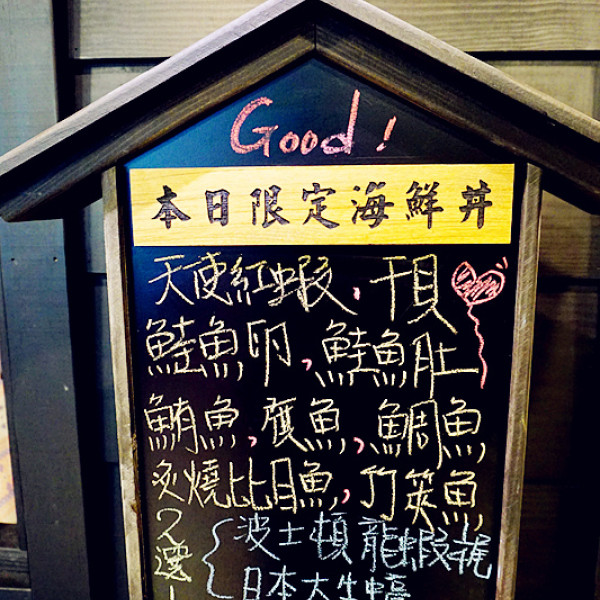 Good!
本日限定海鮮丼
天使紅蝦,干貝
鮭魚卵,鮭魚肚
鮪魚,鷹魚,鯛魚
炙燒比目魚,竹筴魚
2選1 波士頓龍蝦
日本大生蠔